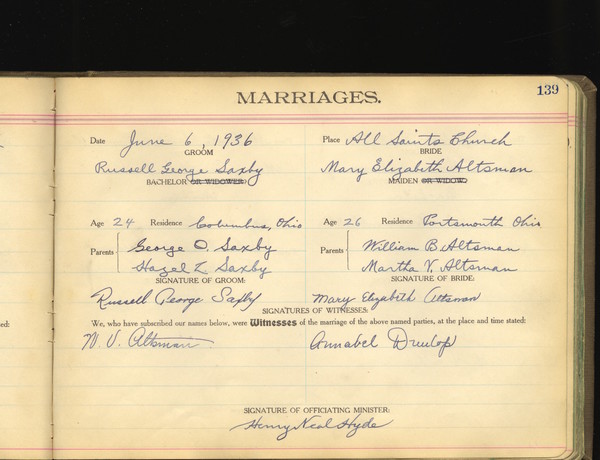 139
MARRIAGES.
Date June 6, 1936 Place All Saints Church
GROOM BRIDE
Russell George Saxby Mary Elizabeth Altsman
BACHELOR OR WIDOWER MAIDEN OR WIDOW
Age 24 Residence Columbus, Ohio Age 26 Residence Portsmouth Ohio
Parents George O. Saxby Parents William B. Altsman
Hazel L Saxby Martha V. Altsman
SIGNATURE OF GROOM: SIGNATURE OF BRIDE:
Russell George Saxby Mary Elizabeth Altsman
SIGNATURES OF WITNESSES:
ed: We, who have subscribed our names below, were Witnesses of the marriage of the above named parties, at the place and time stated:
V. Altsman Annabel Dunlop
SIGNATURE OF OFFICIATING MINISTER:
Henry Neal Hyde